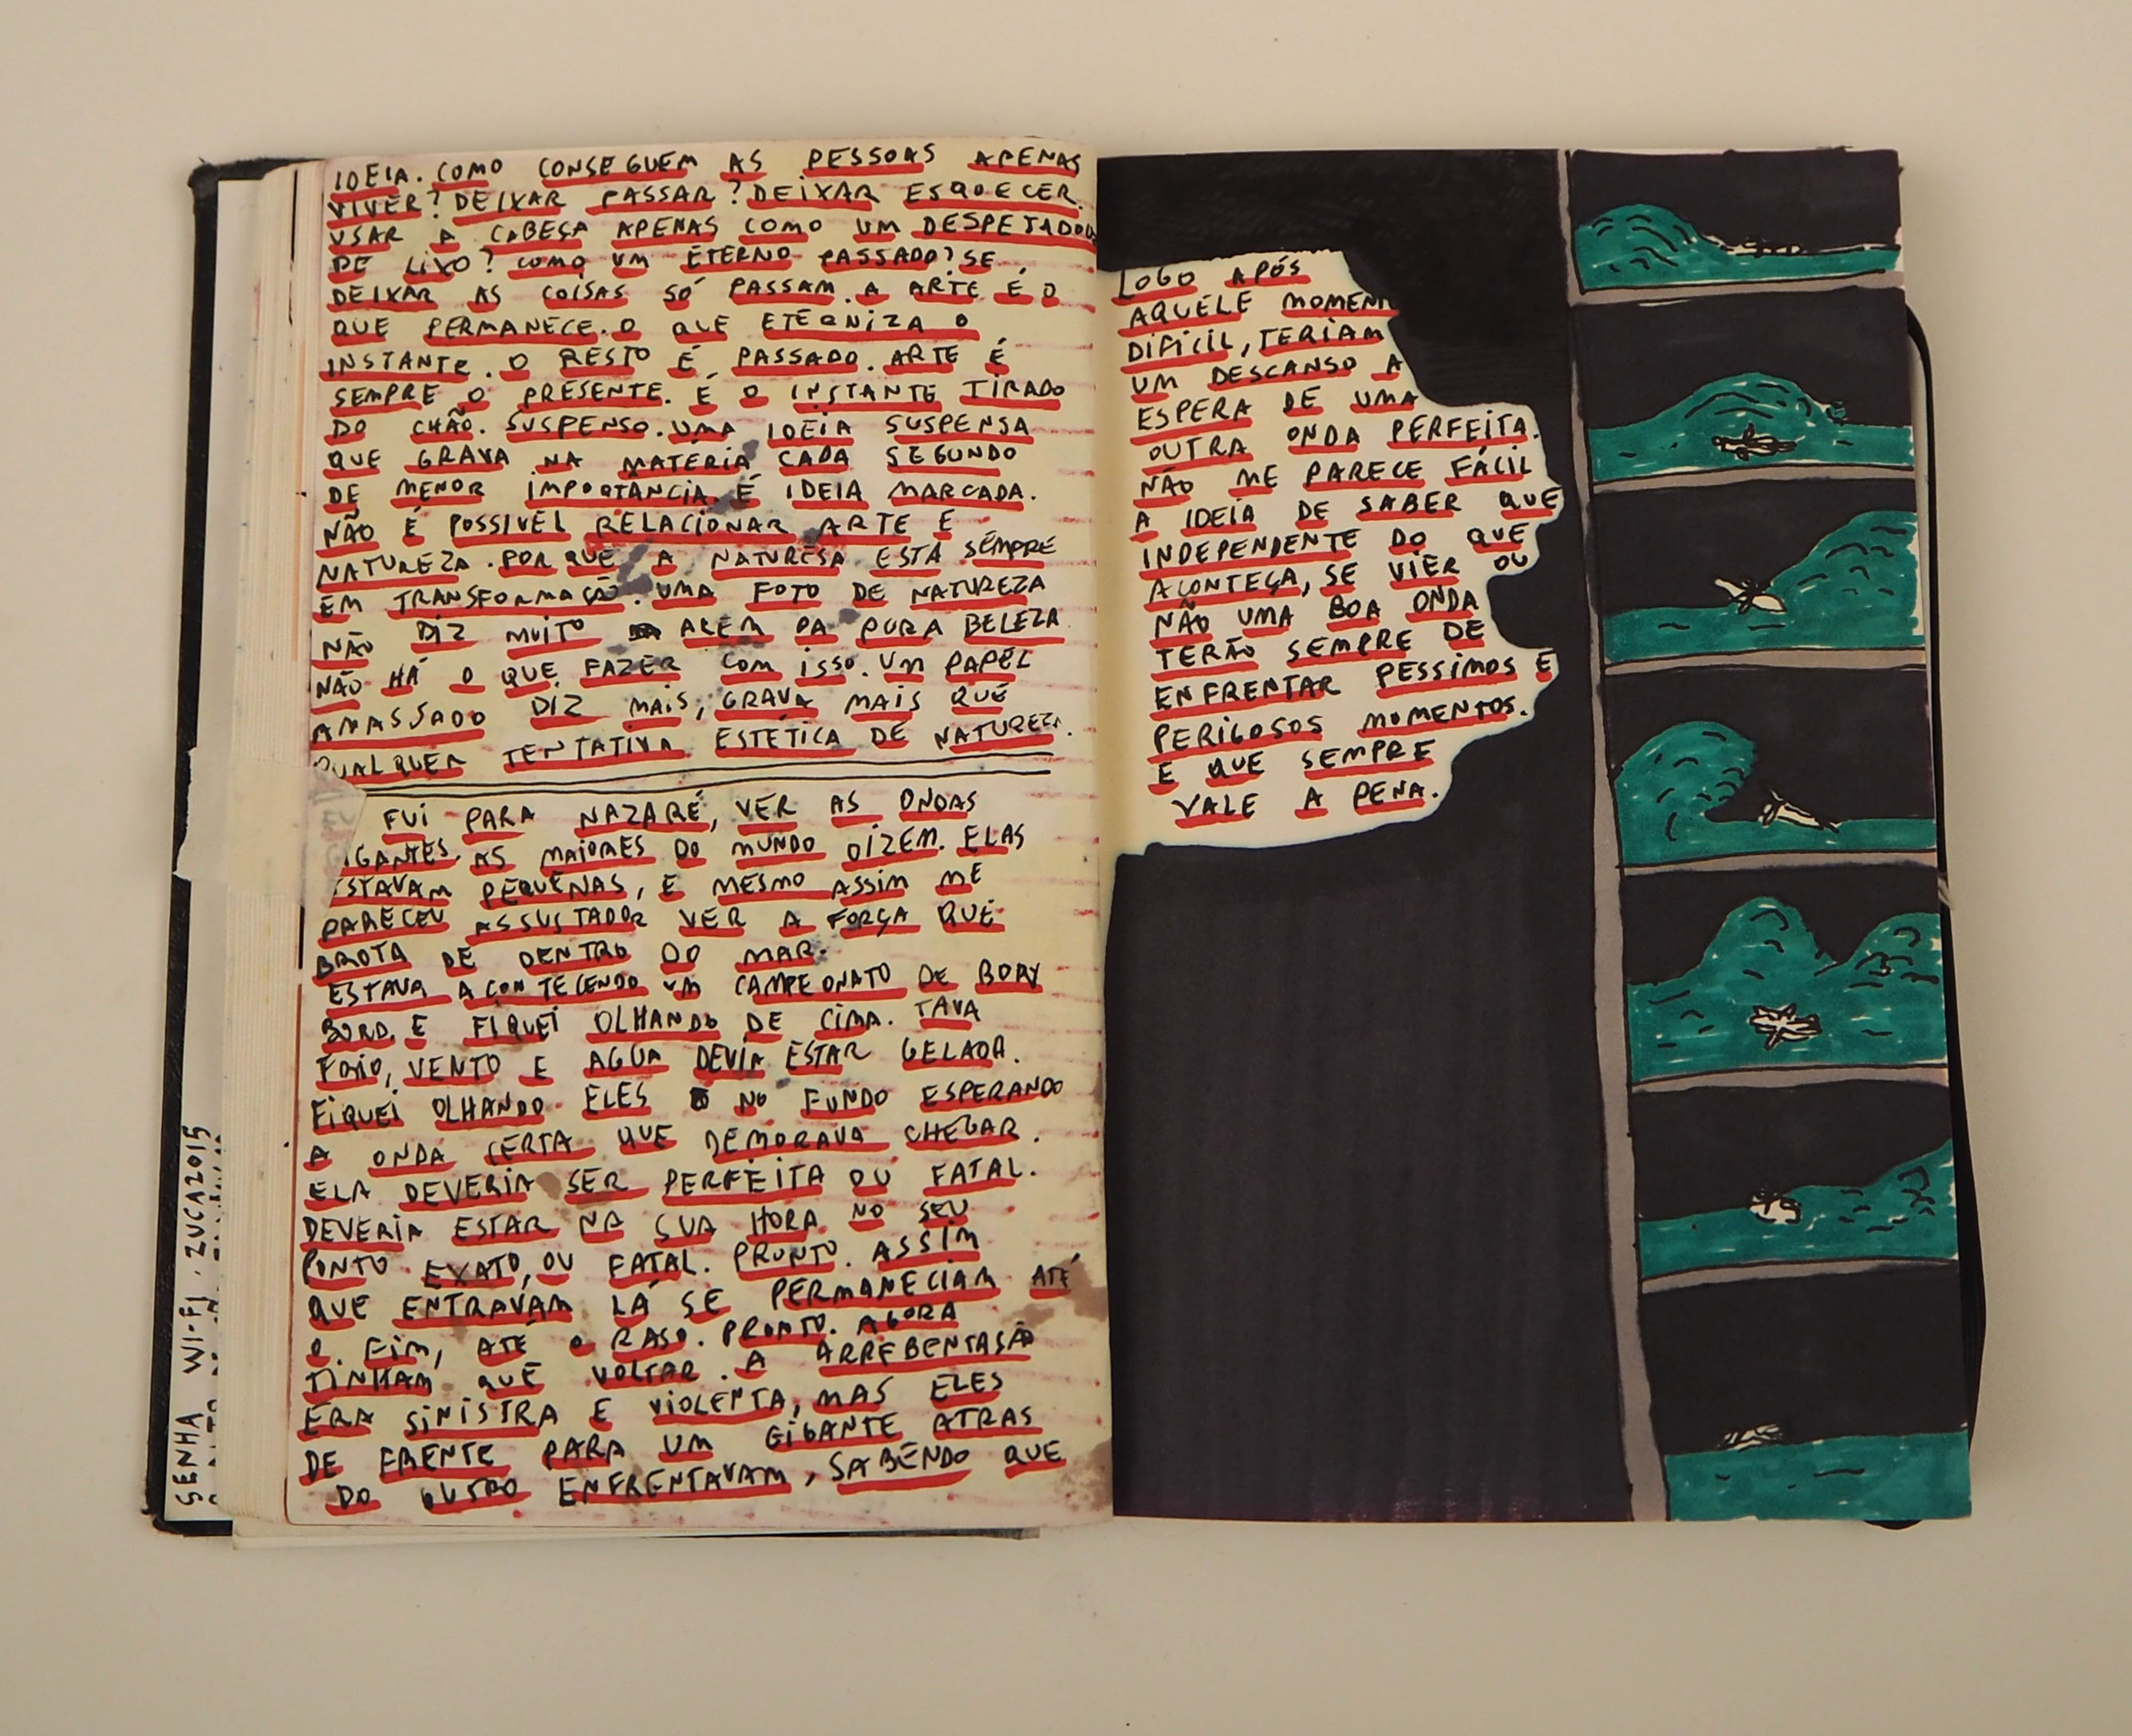 IDEIA. COMO CONSEGUEM AS PESSOAS APENAS
VIVER? DEIXAR PASSAR? DEIXAR ESQUECER.
USAR A CABEÇA APENAS COMO UM DESPEJADOR
DE LIXO? COMO UM ETERNO PASSADO? SE
DEIXAR AS COISAS SÓ PASSAM. A ARTE É O
QUE PERMANECE. O QUE ETERNIZA O
INSTANTE. O RESTO É PASSADO. ARTE É
SEMPRE O PRESENTE. É O INSTANTE TIRADO
DO CHÃO. SUSPENSO. UMA IDEIA SUSPENSA
QUE GRAVA NA MATERIA CADA SEGUNDO
DE MENOR IMPORTÂNCIA. É IDEIA MARCADA.
NÃO É POSSIVEL RELACIONAR ARTE E
NATUREZA. POR QUE A NATURESA ESTÁ SEMPRE
EM TRANSFORMAÇÃO. UMA FOTO DE NATUREZA
NÃO DIZ MUITO ALEM DA PURA BELEZA.
NÃO HÁ O QUE FAZER COM ISSO. UM PAPEL
AMASSADO DIZ MAIS, GRAVA MAIS QUE
QUALQUER TENTATIVA ESTÉTICA DE NATUREZA.
FUI PARA NAZARÉ, VER AS ONDAS
IGANTES. AS MAIORES DO MUNDO DIZEM. ELAS
STAVAM PEQUENAS, E MESMO ASSIM ME
PARECEU ASSUSTADOR VER A FORÇA QUE
BROTA DE DENTRO DO MAR.
ESTAVA ACONTECENDO UM CAMPEONATO DE BODY
BORD. E FIQUEI OLHANDO DE CIMA. TAVA
FRIO, VENTO E AGUA DEVIA ESTAR GELADA.
FIQUEI OLHANDO ELES NO FUNDO ESPERANDO
A ONDA CERTA QUE DEMORAVA CHEGAR.
ELA DEVERIA SER PERFEITA OU FATAL.
DEVERIA ESTAR NA SUA HORA NO SEU
PONTO EXATO, OU FATAL. PRONTO. ASSIM
QUE ENTRAVAM LÁ SE PERMANECIAM ATÉ
O FIM, ATÉ O RASO. PRONTO. AGORA
TINHAM QUE VOLTAR. A ARREBENTAÇÃO
ERA SINISTRA E VIOLENTA, MAS ELES
DE FRENTE PARA UM GIGANTE ATRAS
DO OUTRO ENFRENTAVAM, SABENDO QUE
LOGO APÓS
AQUELE MOMENT
DIFICIL, TERIAM
UM DESCANSO A
ESPERA DE UMA
OUTRA ONDA PERFEITA.
NÃO ME PARECE FÁCIL
A IDEIA DE SABER QUE
INDEPENDENTE DO QUE
ACONTEÇA, SE VIER OU
NÃO UMA BOA ONDA
TERÃO SEMPRE DE
ENFRENTAR PESSIMOS E
PERIGOSOS MOMENTOS.
E QUE SEMPRE
VALE A PENA.
SENHA WI-FI. ZUCA2015